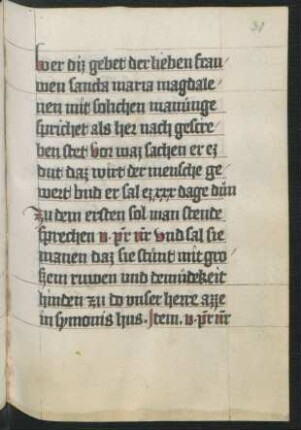 31
Wer diz gebet der lieben frau
wen sancta maria magdale
nen mit solichen manunge
sprichet als her nach gescre
ben stet vor waz sachen er ez
dut daz wirt der mensche ge
wert vnd er sal ez xxx dage dun
Zu dem ersten sol man stende
sprechen v. pr̄ nr̄ vnd sal sie
manen daz sie stunt mit gro
ßem ruwen vnd demudekeit
hinden zu do vnser herre azze
in symonis hus. Item. v. pr̄ nr̄